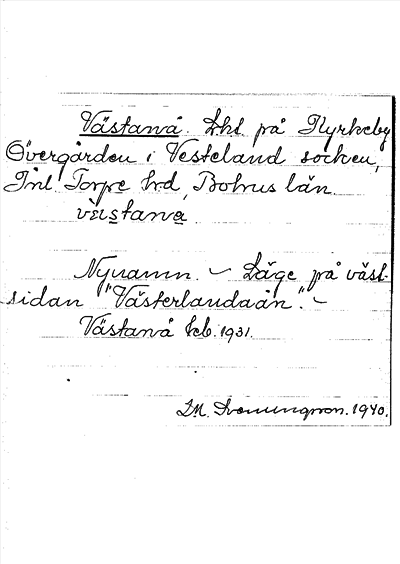 Västanå. Lht. på Kyrkeby
Övergården i Vesterland socken,
Inl. Torpe hrd, Bohus län
vèstanɑ
Nynamn. – Läge på väst-
sidan "Västerlandaån". –
Västanå kb. 1931.
1940.